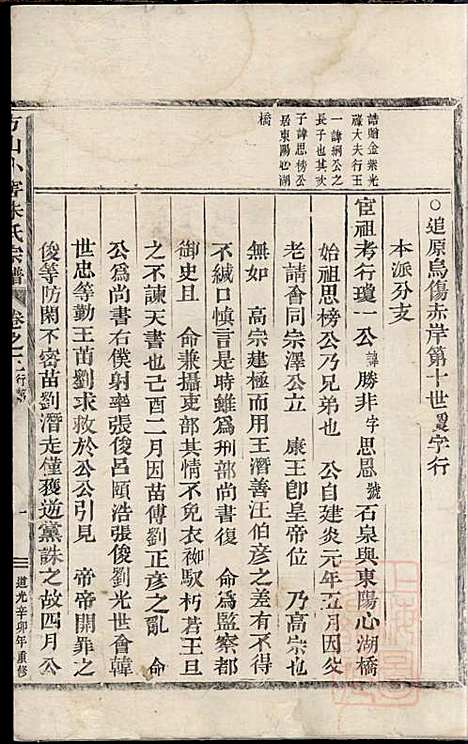 誥贈金紫光
祿大夫行王
一諱綱公之
長子也其次
子諱思榜公
居東陽心湖
橋
○追原烏傷赤岸第十世字行
本派分支
宦祖考行瓊一公諱勝非字思恩號石泉與東陽心湖橋
始祖思榜公乃兄弟也 公自建炎元年五月因父
老請會同宗澤公上立 康王卽皇帝位 乃高宗也
無如 高宗建極而用王潛善汪伯彦之差有不得
不緘口慎言是時雖爲刑部尚書復 命爲監察都
御史且 命兼攝吏部其情不免衣袽馭朽若王旦
之不諫天書也己酉二月因苗傅劉正彦之亂 命
公爲尚書右僕射率張俊呂頤浩張俊劉光世會韓
世忠等勤王苗劉求救於公公引見 帝帝開罪之
俊等防閑不密苗劉潛走僅獲逆黨誅之故四月公
方山小宅朱氏宗譜 卷之 行 一 道光辛卯年重修